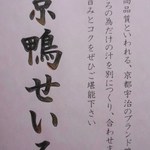 高品質といわれる、京都宇治のブランド
ろの為だけの汁を別につくり、合わせま
旨みとコクをぜひご堪能下さい
京鴨せいろ